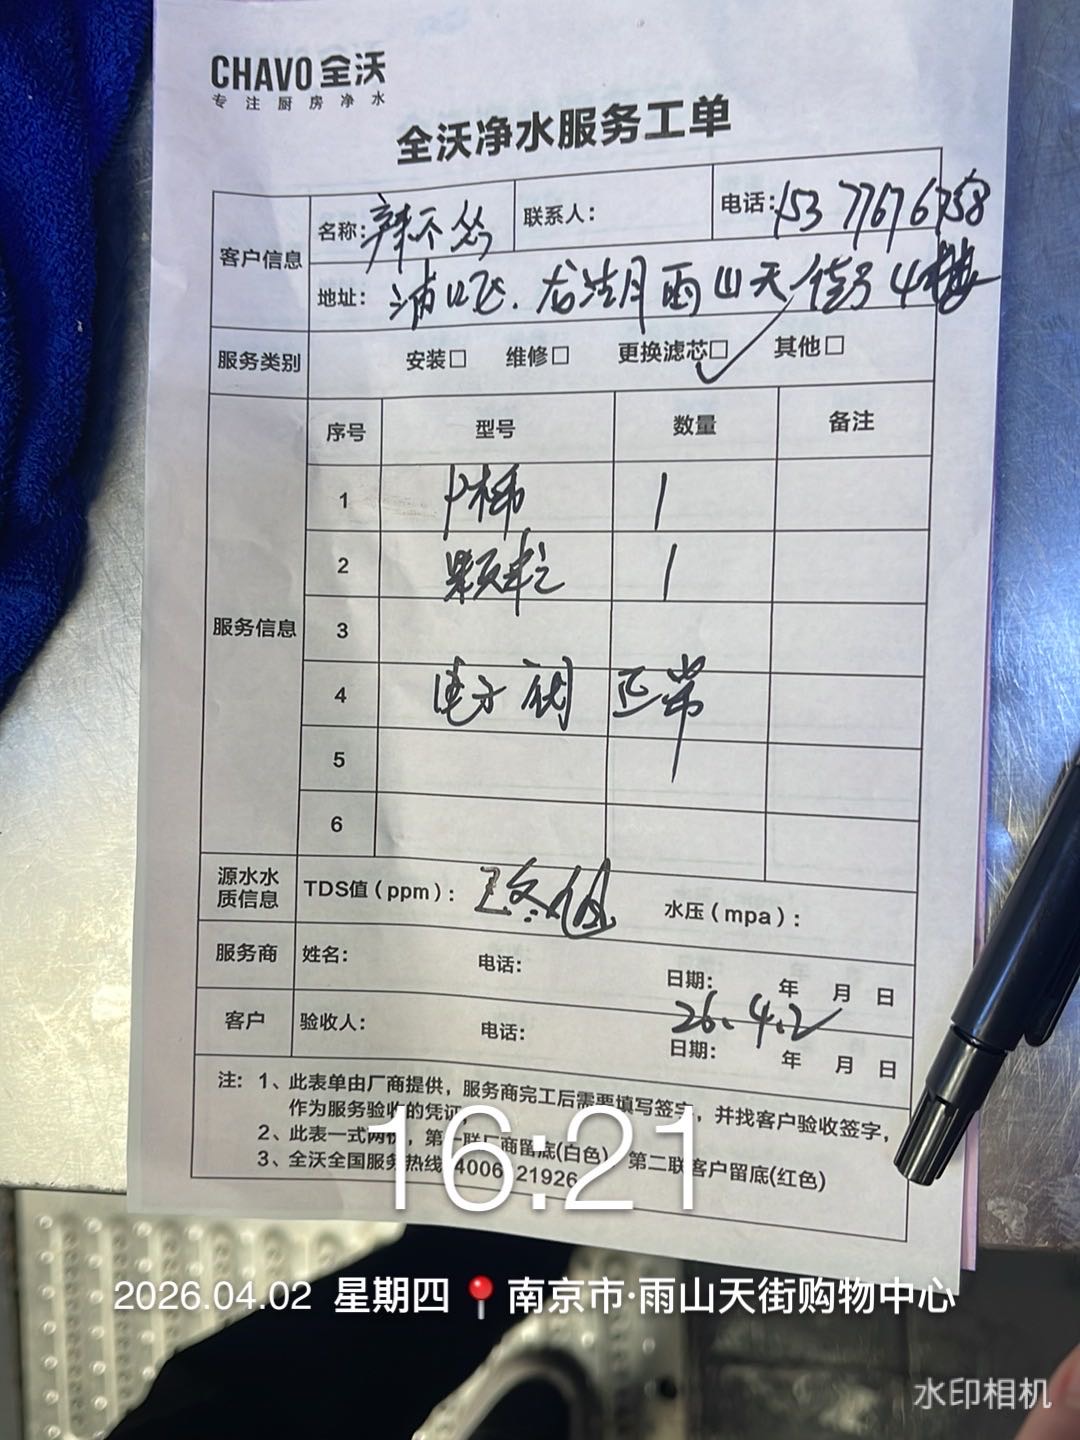 CHAVO 全沃
专注厨房净水
全沃净水服务工单
客户信息 名称：辣不怂 联系人： 电话：15377676758
地址：浦口区.龙湖雨山天街4楼
服务类别 安装□ 维修□ 更换滤芯□✓ 其他□
服务信息 序号 型号 数量 备注
1 1
2 颗粒 1
3
4 电子阀 正常
5
6
源水水质信息 TDS值（ppm）： 水压（mpa）：
服务商 姓名： 电话： 日期： 年 月 日
26.4.2
客户 验收人： 电话： 日期： 年 月 日
注：1、此表单由厂商提供，服务商完工后需要填写签字，并找客户验收签字，
作为服务验收的凭证，
2、此表一式两份，第一联厂商留底(白色)，第二联客户留底(红色)
3、全沃全国服务热线4006 21926
16:21
2026.04.02 星期四 南京市·雨山天街购物中心
水印相机